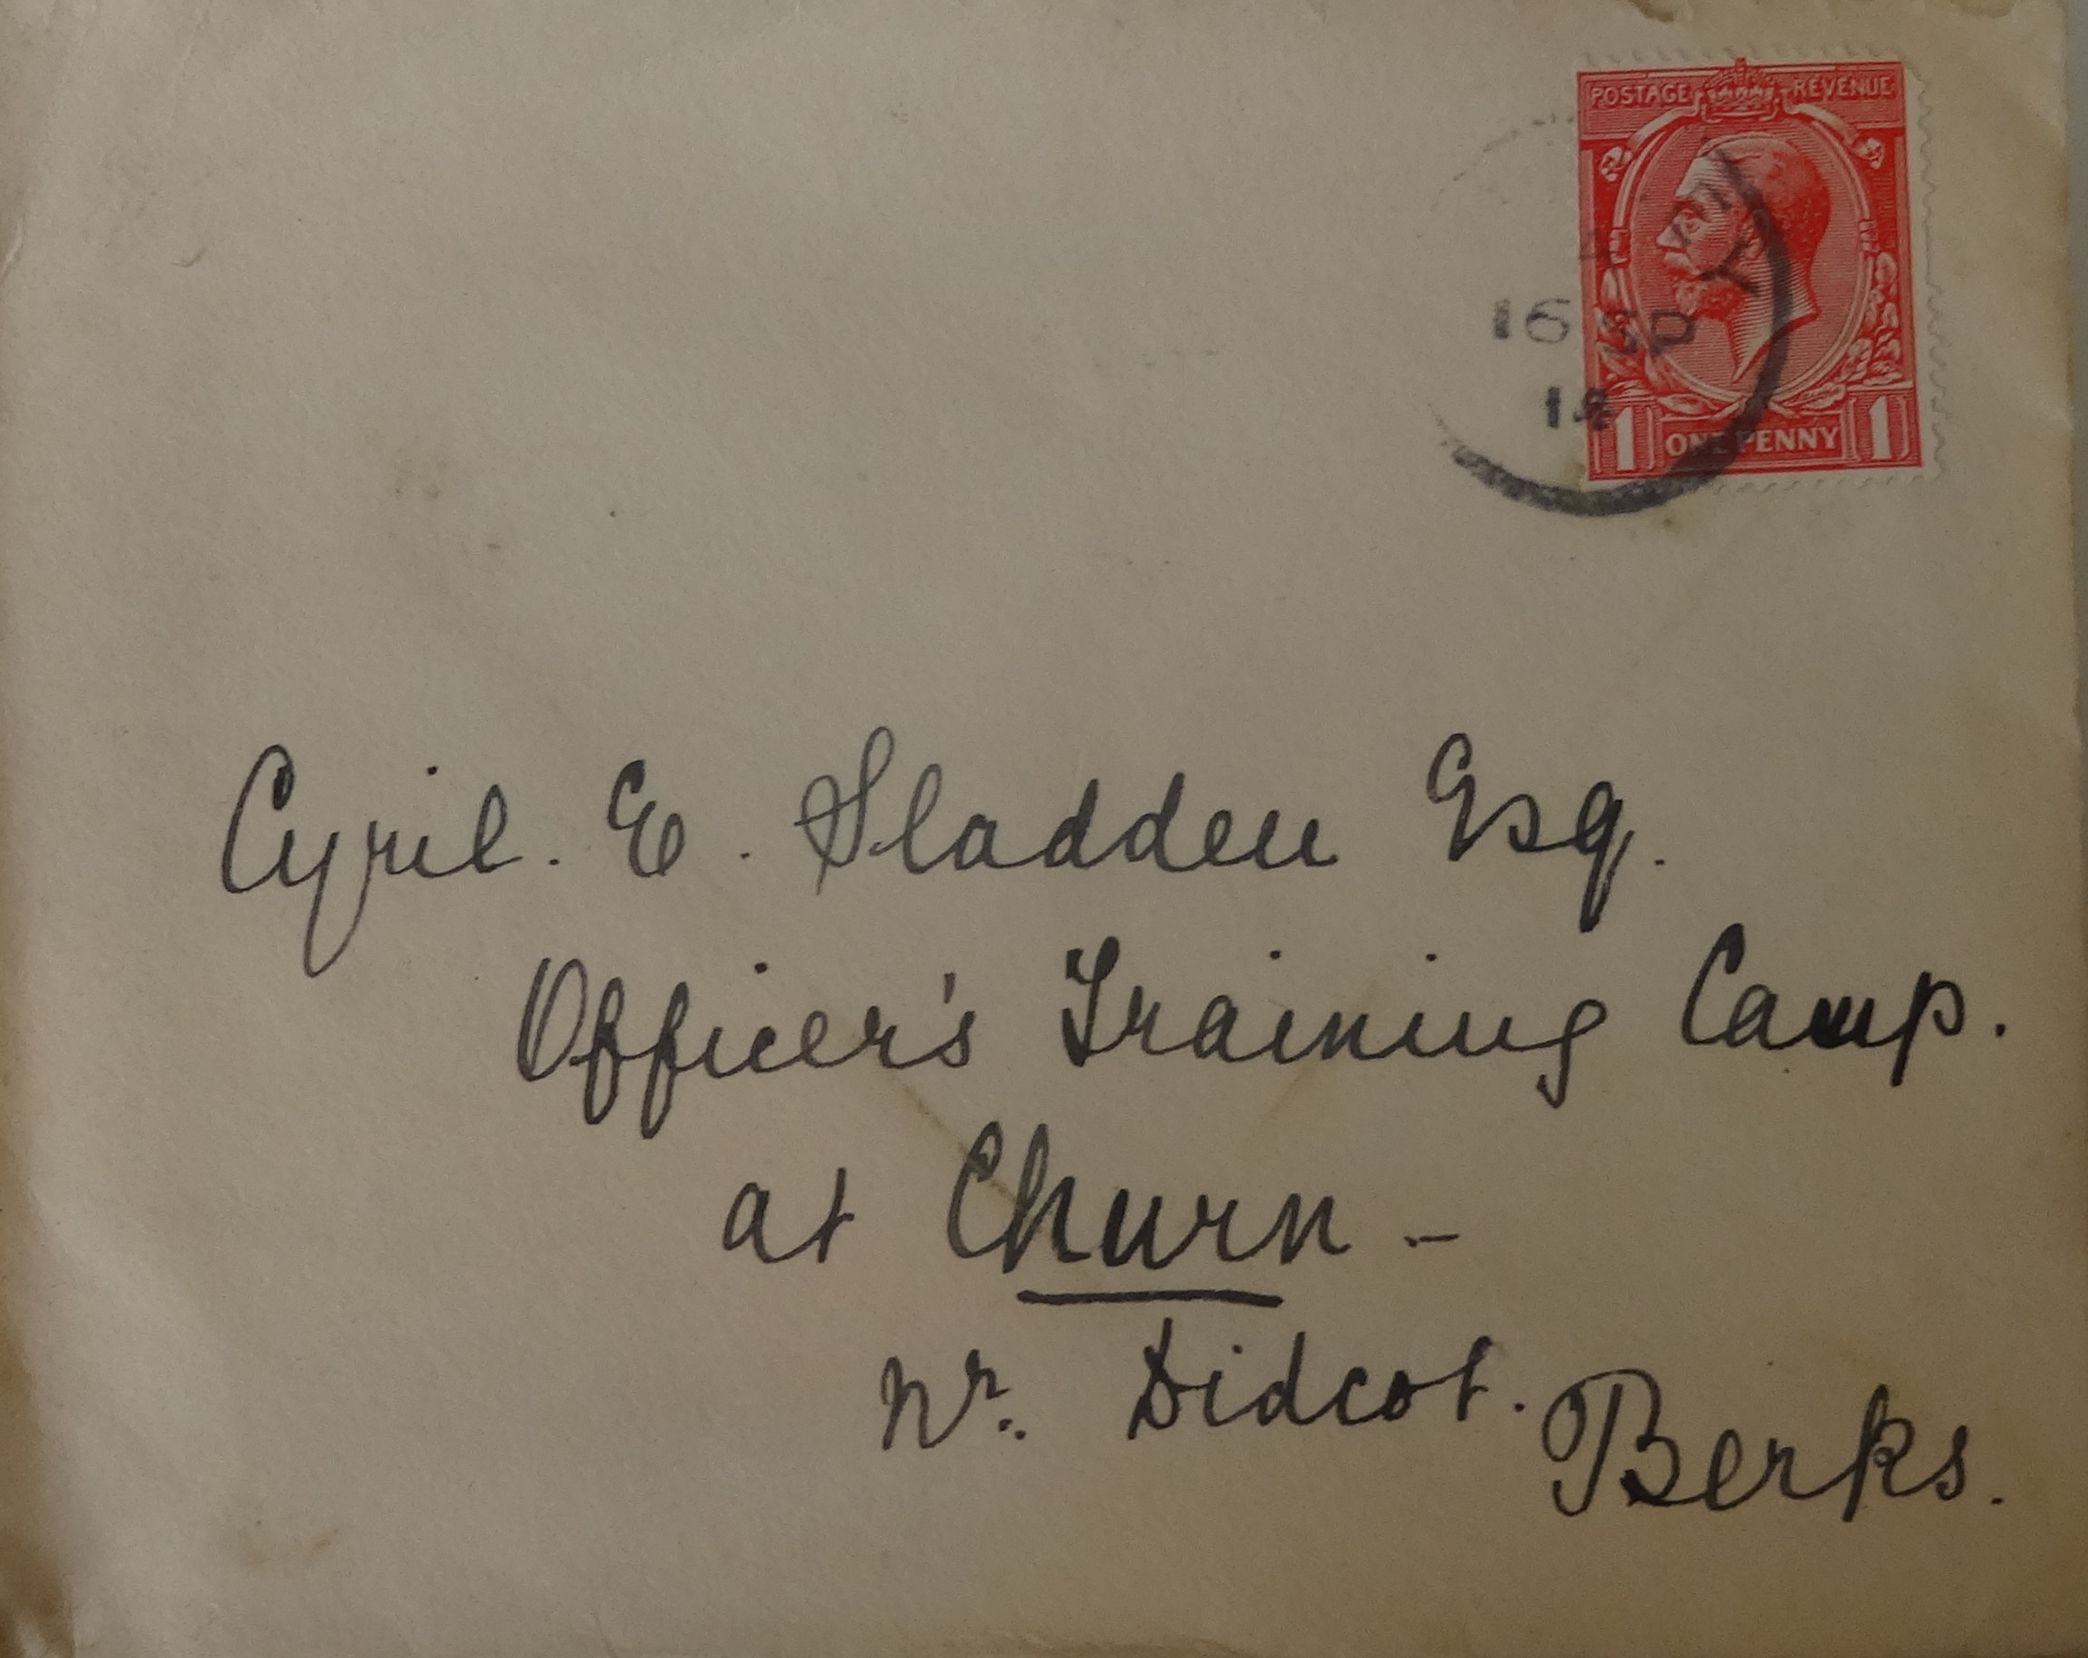 POSTAGE REVENUE
16 SP
14
1 ONE PENNY 1
Cyril. E. Sladden Esq.
Officer's Training Camp.
at Churn -
Nr. Didcot. Berks.